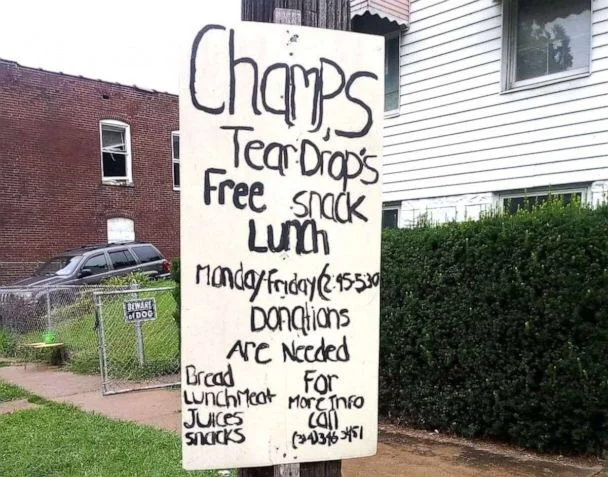 Champ's
Tear Drop's
Free snack
Lunch
Monday-Friday (2:45-5:30
Donations
Are Needed
Bread
LunchMeat
Juices
snacks
For
More Info
Call
(314)346-3451
BEWARE
of DOG